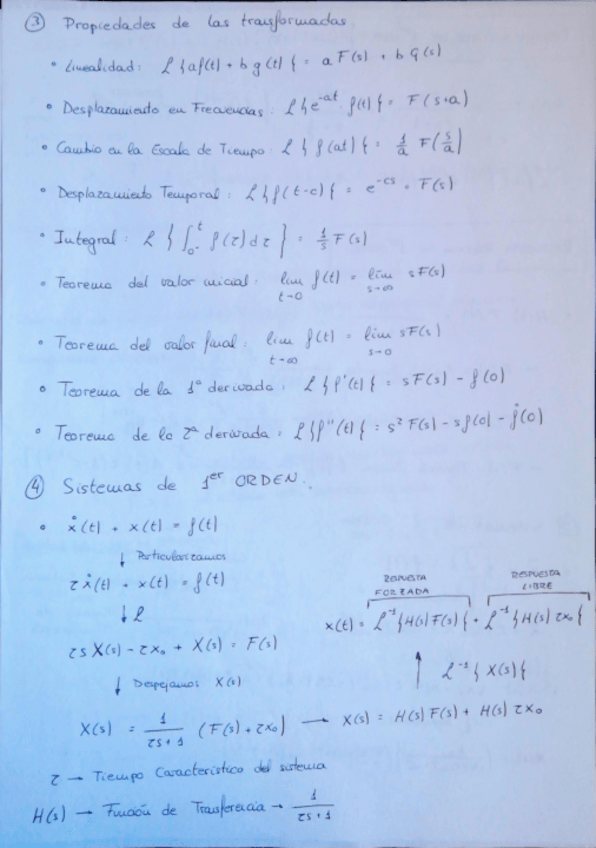 ③ Propiedades de las transformadas.
• Linealidad: L{af(t) + bg(t)} = aF(s) + bG(s)
• Desplazamiento en Frecuencias: L{e^-at · f(t)} = F(s+a)
• Cambio en la Escala de Tiempo: L{f(at)} = 1/a F(s/a)
• Desplazamiento Temporal: L{f(t-c)} = e^-cs · F(s)
• Integral: L{∫_0-^t f(τ)dτ} = 1/s F(s)
• Teorema del valor inicial: lim t→0 f(t) = lim s→∞ sF(s)
• Teorema del valor final: lim t→∞ f(t) = lim s→0 sF(s)
• Teorema de la 1ª derivada: L{f'(t)} = sF(s) - f(0)
• Teorema de la 2ª derivada: L{f''(t)} = s²F(s) - sf(0) - ḟ(0)
④ Sistemas de 1er ORDEN.
• ẋ(t) + x(t) = f(t)
↓ Particularizamos
τẋ(t) + x(t) = f(t)
↓ L
τsX(s) - τx₀ + X(s) = F(s)
↓ Despejamos X(s)
X(s) = 1/(τs+1) (F(s) + τx₀) → X(s) = H(s)F(s) + H(s)τx₀
↑ L^-1{X(s)}
RESPUESTA FORZADA
RESPUESTA LIBRE
x(t) = L^-1{H(s)F(s)} + L^-1{H(s)τx₀}
τ → Tiempo Característico del sistema
H(s) → Función de Transferencia → 1/(τs+1)